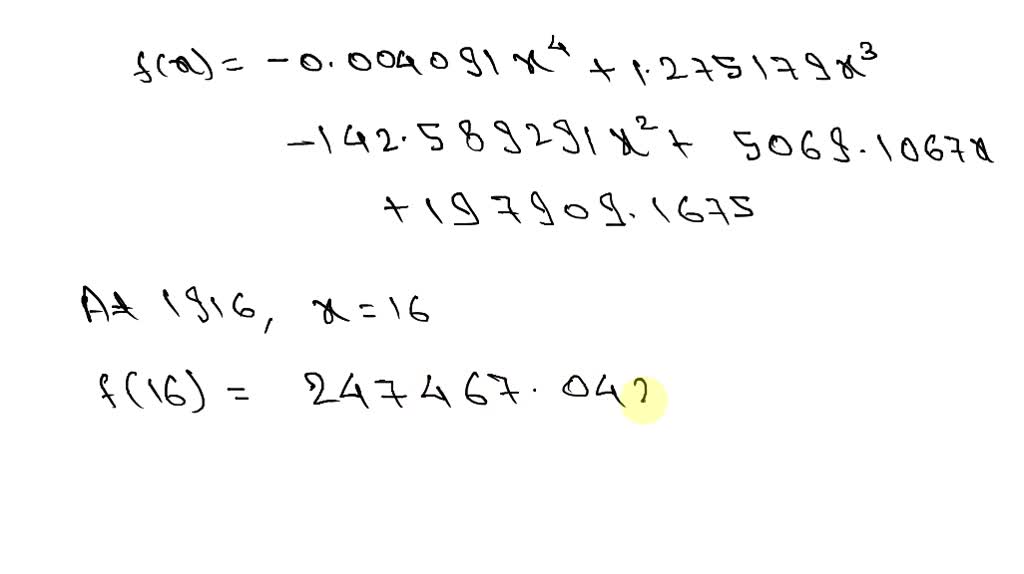 f(x) = -0.004091x⁴ + 1.275179x³
-142.589291x² + 5069.1067x
+197909.1675
At 1916, x = 16
f(16) = 247467.04